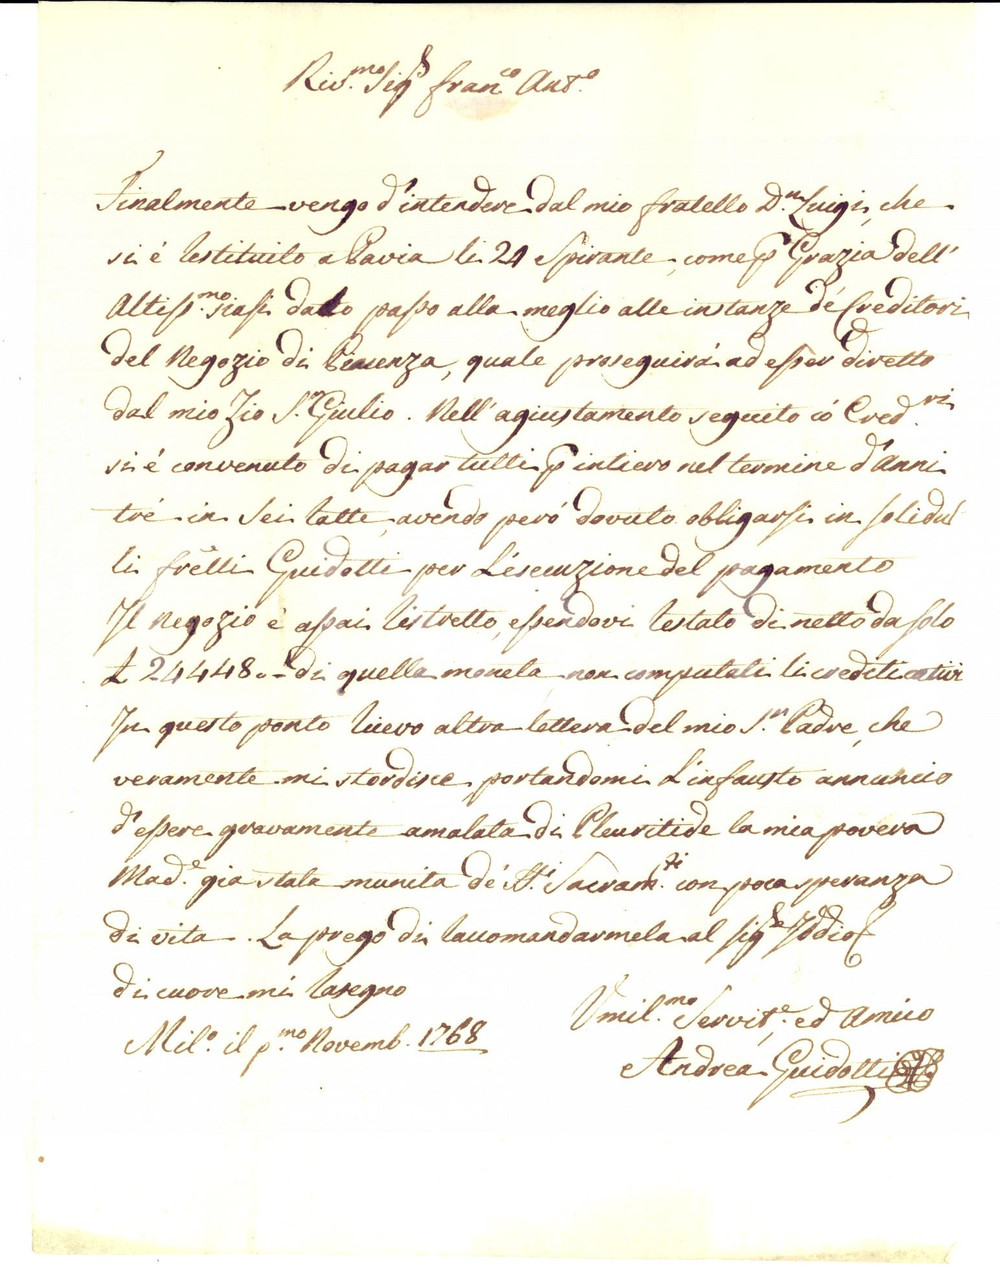 Riv.mo Sig.r Fran.co Ant.o
Finalmente vengo d'intendere dal mio fratello D.n Luigi, che
si é restituito a Pavia li 24 spirante, come p Grazia dell'
Altiss.mo siasi dato passo alla meglio alle instanze de' Creditori
del Negozio di Piacenza, quale proseguirá ad esser diretto
dal mio Zio S.r Giulio. Nell'agiustamento seguito có Cred.ri
si é convenuto di pagar tutti p intiero nel termine d'Anni
tré in sei ratte, avendo peró dovuto obligarsi in solidu
li frelli Guidotti per l'esecuzione del pagamento
Il Negozio é assai ristretto, essendovi restato di netto da solo
£ 24448.- di quella moneta non computati li crediti cattivi
In questo ponto ricevo altra lettera del mio S.r Padre, che
veramente mi stordisce portandomi l'infausto annuncio
d'essere gravamente amalata di Pleuritide la mia povera
Mad.e gia stata munita de' S.ti Sacram.ti con poca speranza
di vita. La prego di raccomandarmela al Sig.e Iddio, e
di cuore mi rasegno
Mil.o il p.mo Novemb. 1768
Umil.mo Servit.e ed Amico
Andrea Guidotti